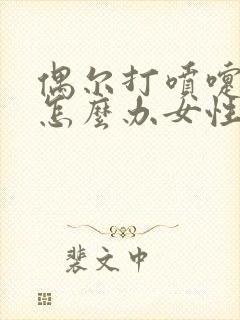 偶尔打喷嚏
怎麼办女性
裴文中